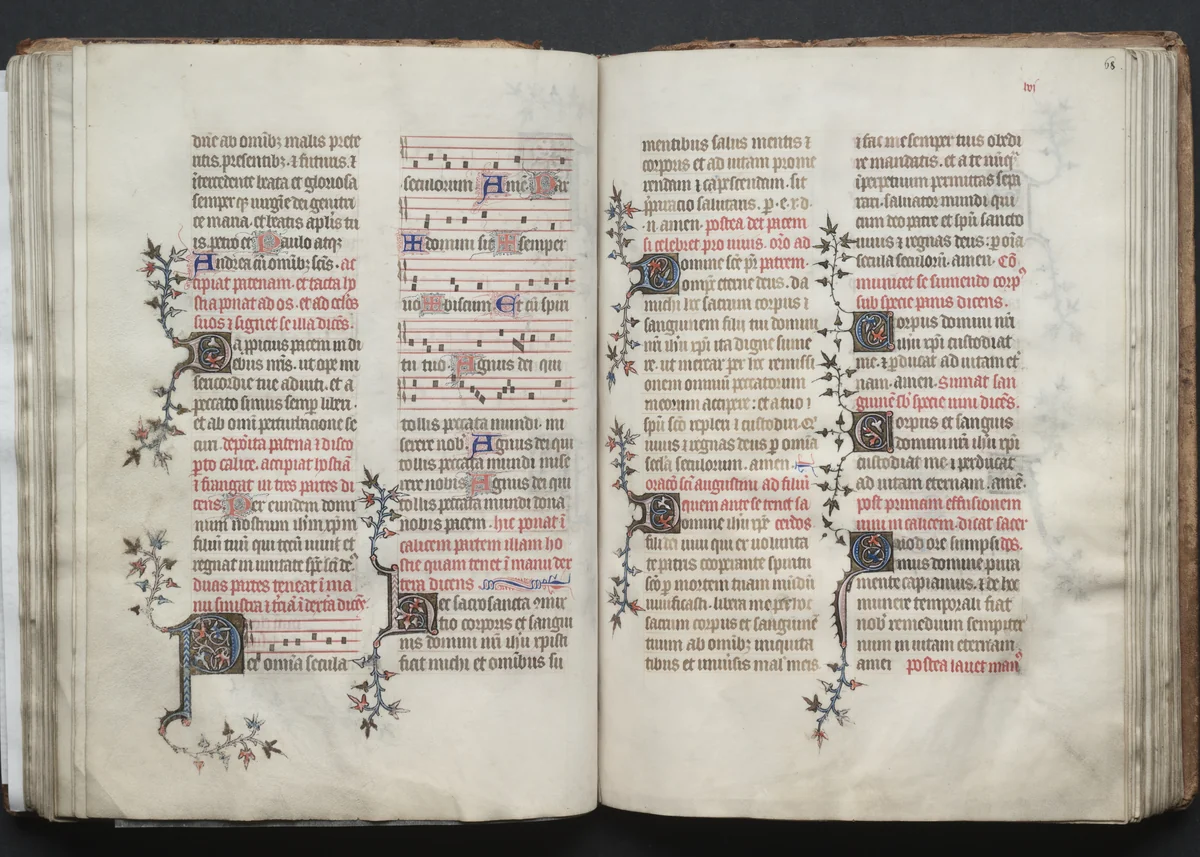 dne ab omibz malis prete
ritis, presentibz. ⁊ futuris. ⁊
itercedente beata et gloriosa
semper qz uirgie dei genitri
ce maria. et beatis aplis tu
is petro et Paulo atqz
Andrea cu omibz scis. ac
cipiat patenam. et tacta ip
sa ponat ad os. et ad celos
suos ⁊ signet se illa dices.
Da ppicius pacem in di
ebus nris. ut ope mi
sericordie tue adiuti. et a
peccato simus semp liberi.
et ab omi perturbatione se
curi. deposita patena ⁊ disco
opto calice. accipiat hostia
⁊ frangat in tres partes di
cens. Per eundem domi
num nostrum ihm xpm
filiu tuu qui tecu uiuit et
regnat in unitate sps sci de
duas partes teneat i ma
nu sinistra ⁊ tcia i dextra dices.
Per omia secula
seculorum Ame Pax
domini sit semper
uo biscum Et cu spiri
tu tuo Agnus dei qui
tollis peccata mundi. mi
serere nob. Agnus dei qui
tollis peccata mundi mise
rere nobis Agnus dei qui
tollis peccata mundi dona
nobis pacem. hic ponat i
calicem partem illam ho
stie quam tenet i manu dex
tera dicens
Hec sacrosancta comix
tio corporis et sangui
nis domini nri ihu xpisti
fiat michi et omibus su
68
lvi
mentibus salus mentis ⁊
corporis et ad uitam prome
rendam ⁊ capescendam. sit
pparacio salutaris. p. e. x. d.
n. amen. postea det pacem
si celebret pro uiuis. oro ad
Domine sce pr patrem.
omps eterne deus. da
michi hoc sacrum corpus ⁊
sanguinem filii tui domini
nri ihu xpi ita digne sume
re. ut merear per hoc remissi
onem omniu peccatorum
meorum accipere: et a tuo ⁊
spu sco repleri ⁊ custodiri. Q
uiuis ⁊ regnas deus p omia
secla seculorum. amen.
oracio sci augustini ad filiu
quem ante se tenet sa
Domine ihu xpe cerdos
fili dei uiui qui ex uolunta
te patris cooperante spiritu
sco p mortem tuam mudu
uiuificasti. libera me per hoc
sacrum corpus et sanguine
tuum ab omibz iniquita
tibus et uniuersis malis meis
⁊ fac me semper tuis obedi
re mandatis. et a te nuqz
iperpetuum permittas sepa
rari. saluator mundi qui
cum deo patre et spu sancto
uiuis ⁊ regnas deus: p oia
secula seculorum. amen. Co
municet se sumendo corpus
sub specie panis dicens.
Corpus domini nri
ihu xpi custodiat
me. ⁊ pducat ad uitam eter
nam. amen. Sumat san
guine sub specie uini dices.
Corpus et sanguis
domini nri ihu xpi
custodiat me ⁊ perducat
ad uitam eternam. ame.
post primam effusionem
uini in calicem. dicat sacer
Quod ore sumpsi dos.
mus domine pura
mente capiamus. ⁊ de hoc
munere temporali fiat
nob remedium sempiter
num in uitam eternam.
amen postea lauet manus